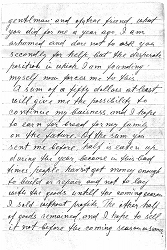 gentleman and aftrue friend what
you did for me a year ago. I am
ashamed and does not to ask you
secondly for help, but the desperate
position in which I am founding
myself now forces me to this.
A sum of a fifty dollars at least
will give me the possibility to
continue my business, and I hope
to earn my bread for my family
in the future. Of the sum you
sent me before, half is eaten up
during the year, because in this hard
times people haven't got money enough
to build or repair and not to lay
with the goods until the coming season
I sold without profite. The other half
of goods remained and I hope to sell
it not before the coming season